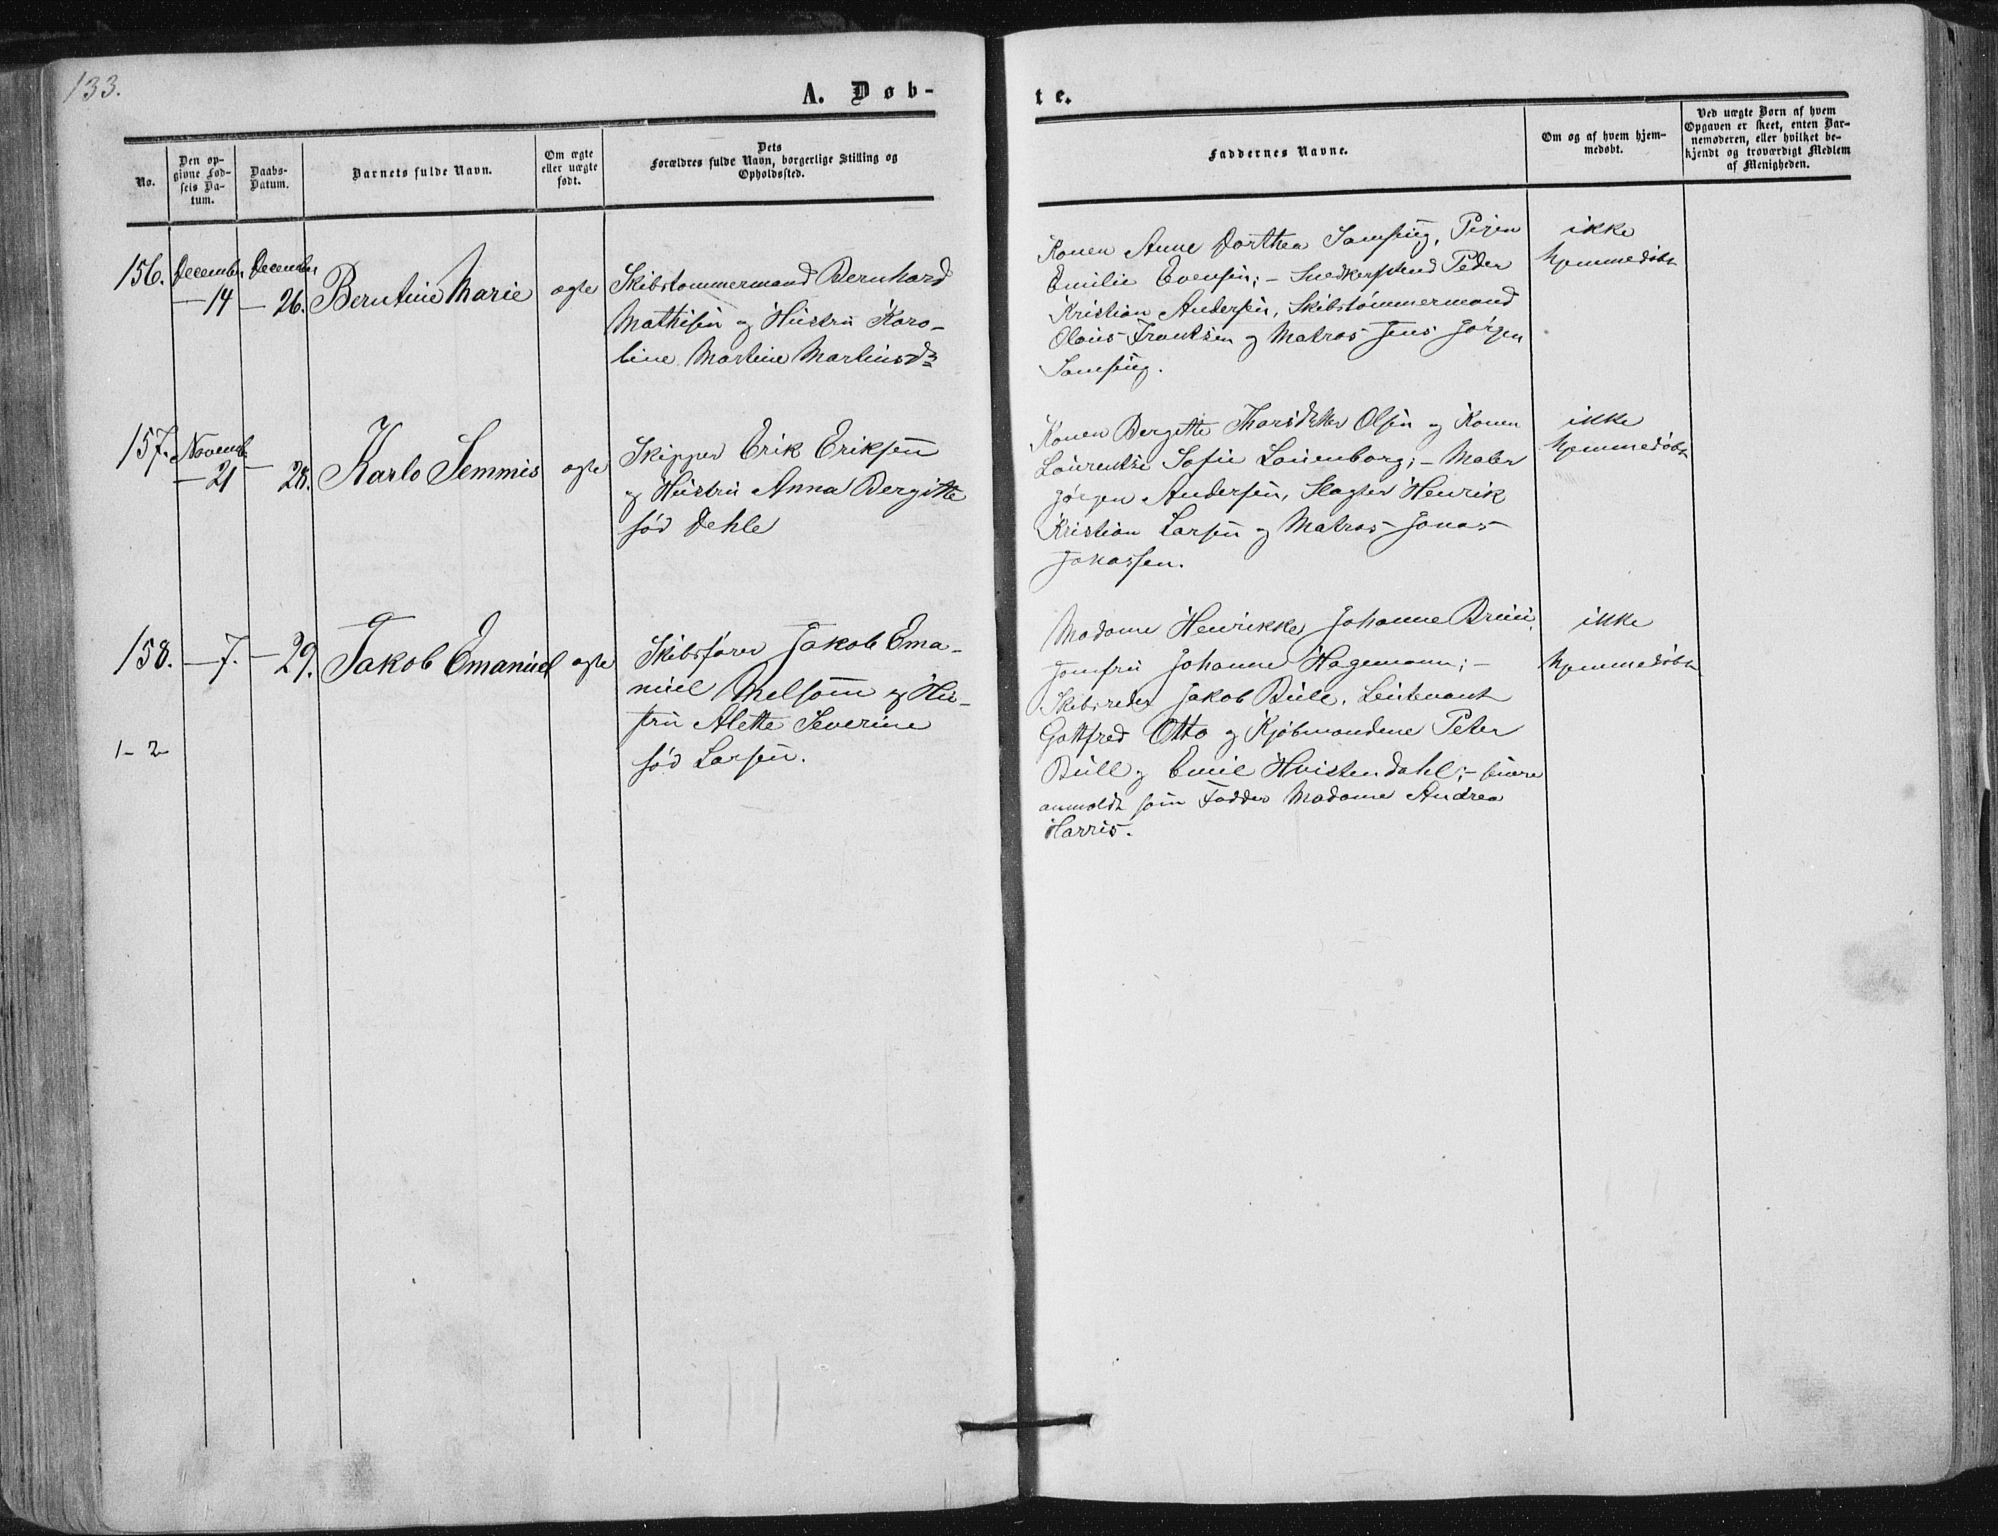 133.
A. Døb-
te.
No.
Den op-
givne Fød-
sels Da-
tum.
Daabs-
Datum.
Barnets fulde Navn.
Om ægte
eller uægte
født.
Dets
Forældres fulde Navn, borgerlige Stilling og
Opholdssted.
Faddernes Navne.
Om og af hvem hjem-
medøbt.
Ved uægte Børn af hvem
Opgaven er skeet, enten Bar-
nemoderen, eller hvilket be-
kjendt og troværdigt Medlem
af Menigheden.
156.
December
– 14
December
– 26.
Berntine Marie
ægte
Skibstømmermand Bernhard
Mathisen og Hustru Karo-
line Martine Martinsd.
Konen Anne Dorthea Samsing, Pigen
Emilie Evensen; – Snedkersvend Peder
Kristian Andersen, Skibstømmermand
Olaus Frantsen og Matros Jens Jørgen
Samsing.
ikke
hjemmedøbt
157.
Novemb.
– 21
– 28.
Karlo Semmis
ægte
Skipper Erik Eriksen
og Hustru Anna Bergitte
fød Dehle
Konen Bergitte Olsen og Konen
Laurentse Sofie Lauenborg; – Maler
Jørgen Andersen, Slagter Henrik
Kristian Larsen og Matros Jonas
Jonassen.
ikke
hjemmedøbt
158.
– 7.
– 29.
Jakob Emanuel
ægte
Skibsfører Jakob Ema-
nuel Melsom og Hu-
stru Alette Severine
fød Larsen.
1–2
Madame Henrikke Johanne Bruu,
Jomfru Johanne Hagemann; –
Skibsreder Jakob Bull, Leutenant
Gottfred Otto og Kjøbmændene Peter
Bull og Emil Hvistendahl; –
anmeldt som Fadder Madame Andrea
Harris.
ikke
hjemmedøbt